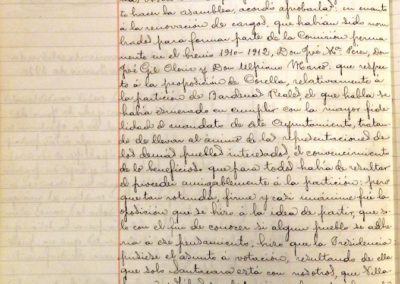 to hacer la asamblea, acordó aprobarla: en cuanto
á la renovación de cargos, que habían sido nom
brados para formar parte de la Comisión perma
nente en el bienio 1910-1912, Don José Mª Pérez, Don
José Gil Clavir y Don Ulpiano Marco: que respec
to á la proposición de Corella, relativamente á
la partición de Bardenas Reales, el que habla se
había esmerado en cumplir con la mayor fide
lidad el mandato de este Ayuntamiento, tratan
do de llevar al ánimo de las representaciones de
los demás pueblos interesados, el convencimiento
de lo beneficioso que para todos había de resultar
el proceder amigablemente á la partición: pero
que tan rotunda, firme y casi unánime fué la
oposición que se hizo á la idea de partir, que so
lo con el fin de conocer si algun pueblo se adhe
ría á ese pensamiento, hizo que la Presidencia
pusiese el asunto á votación, resultando de ella
que solo Santacara está con nosotros, que Villa